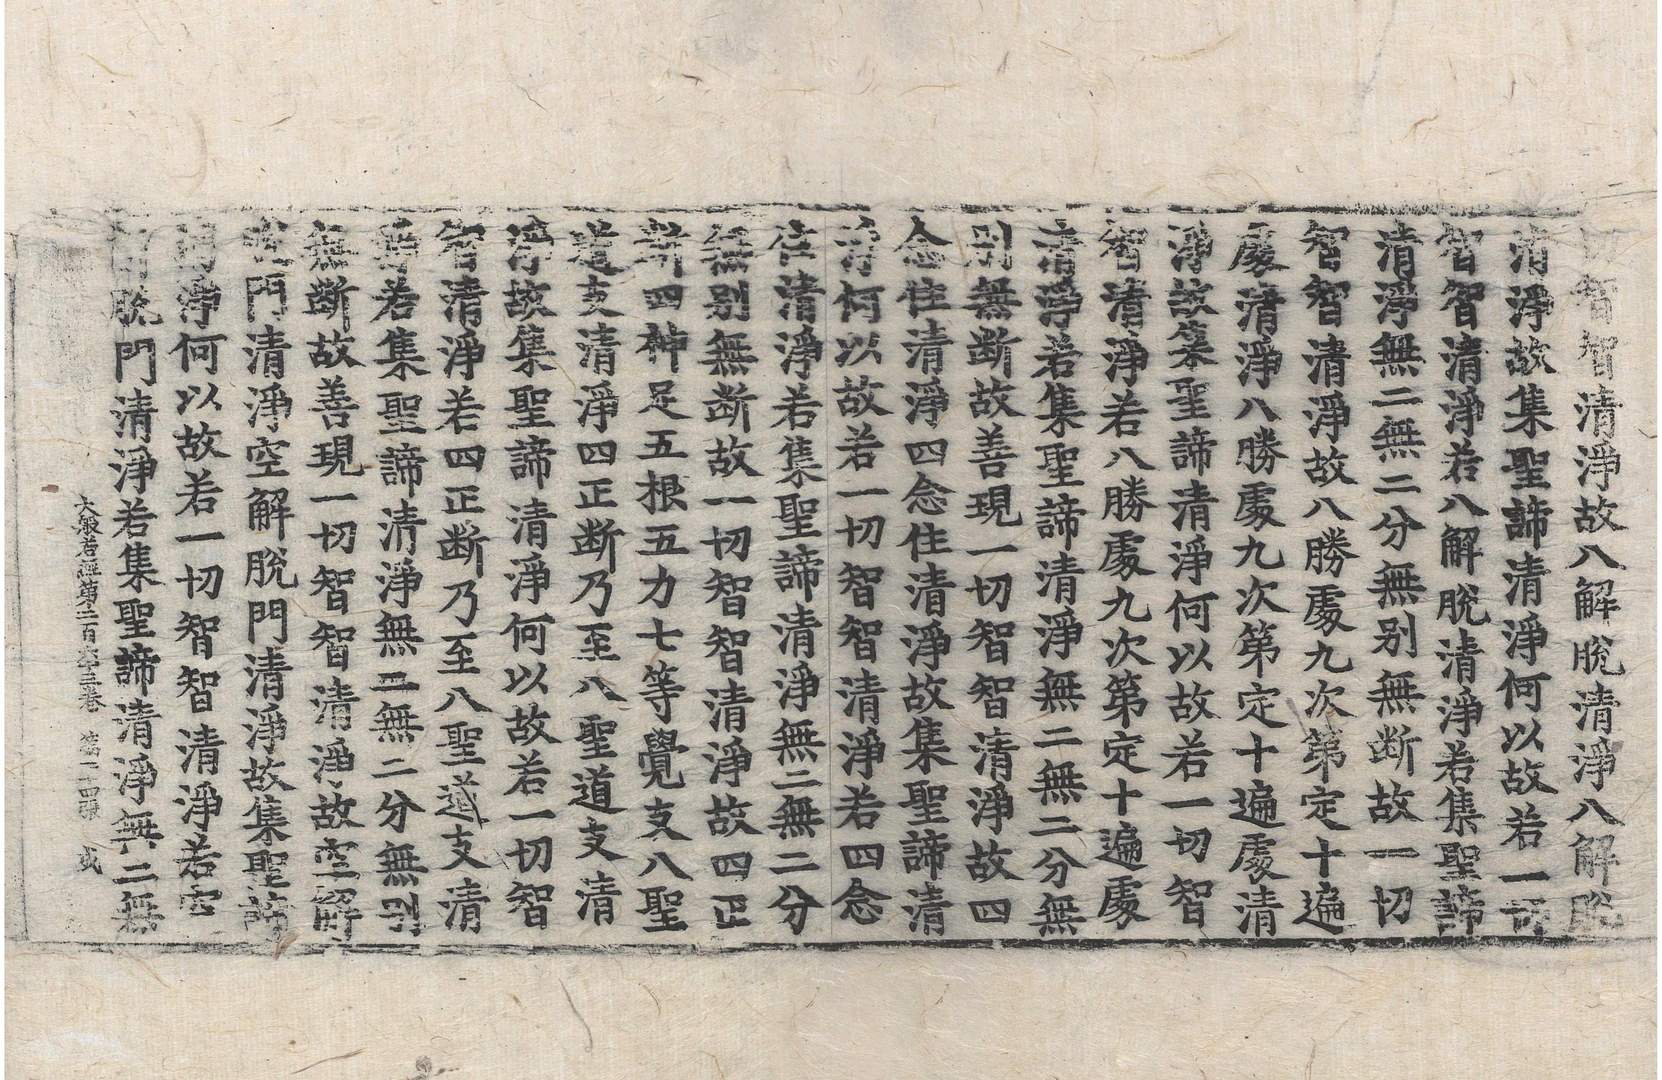 切智智清淨故八解脫清淨八解脫
清淨故集聖諦清淨何以故若一切
智智清淨若八解脫清淨若集聖諦
清淨無二無二分無別無斷故一切
智智清淨故八勝處九次第定十遍
處清淨八勝處九次第定十遍處清
淨故集聖諦清淨何以故若一切智
智清淨若八勝處九次第定十遍處
清淨若集聖諦清淨無二無二分無
別無斷故善現一切智智清淨故四
念住清淨四念住清淨故集聖諦清
淨何以故若一切智智清淨若四念
住清淨若集聖諦清淨無二無二分
無別無斷故一切智智清淨故四正
斷四神足五根五力七等覺支八聖
道支清淨四正斷乃至八聖道支清
淨故集聖諦清淨何以故若一切智
智清淨若四正斷乃至八聖道支清
淨若集聖諦清淨無二無二分無別
無斷故善現一切智智清淨故空解
脫門清淨空解脫門清淨故集聖諦
清淨何以故若一切智智清淨若空
解脫門清淨若集聖諦清淨無二無
大般若經第二百六十三卷 第二十四張 戎